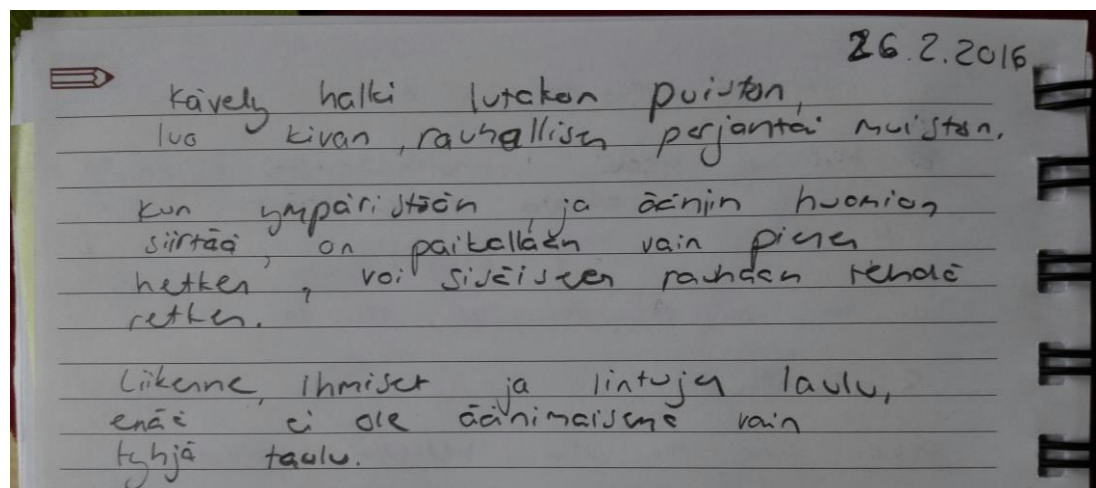 26.2.2016
Kävely halki lutakon puiston,
luo kivan, rauhallisen perjantai muiston.
Kun ympäristöön, ja ääniin huomion
siirtää, on paikallään vain pienen
hetken, voi sisäiseen rauhaan tehdä
retken.
Liikenne, ihmiset ja lintujen laulu,
enää ei ole äänimaisema vain
tyhjä taulu.